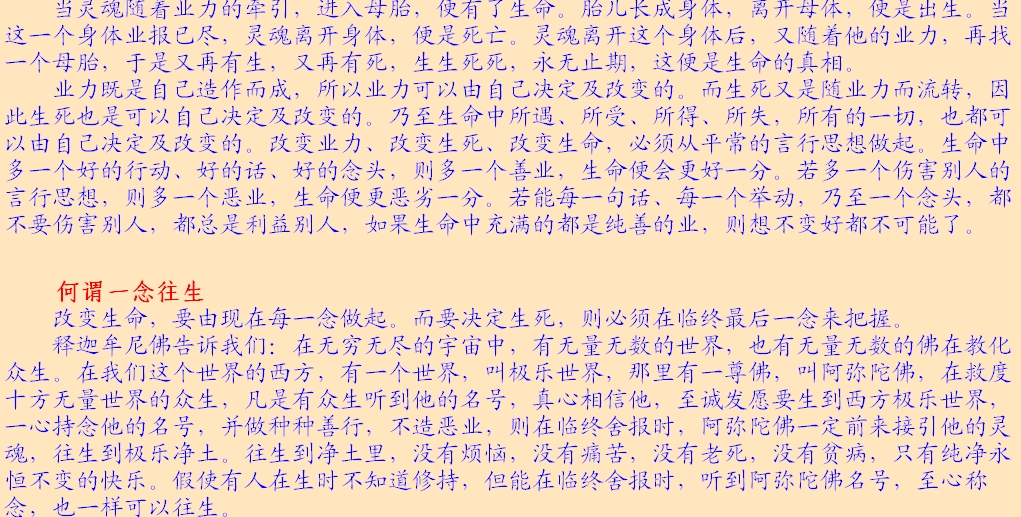 当灵魂随着业力的牵引，进入母胎，便有了生命。胎儿长成身体，离开母体，便是出生。当
这一个身体业报已尽，灵魂离开身体，便是死亡。灵魂离开这个身体后，又随着他的业力，再找
一个母胎，于是又再有生，又再有死，生生死死，永无止期，这便是生命的真相。
业力既是自己造作而成，所以业力可以由自己决定及改变的。而生死又是随业力而流转，因
此生死也是可以自己决定及改变的。乃至生命中所遇、所受、所得、所失，所有的一切，也都可
以由自己决定及改变的。改变业力、改变生死、改变生命，必须从平常的言行思想做起。生命中
多一个好的行动、好的话、好的念头，则多一个善业，生命便会更好一分。若多一个伤害别人的
言行思想，则多一个恶业，生命便更恶劣一分。若能每一句话、每一个举动，乃至一个念头，都
不要伤害别人，都总是利益别人，如果生命中充满的都是纯善的业，则想不变好都不可能了。
何谓一念往生
改变生命，要由现在每一念做起。而要决定生死，则必须在临终最后一念来把握。
释迦牟尼佛告诉我们：在无穷无尽的宇宙中，有无量无数的世界，也有无量无数的佛在教化
众生。在我们这个世界的西方，有一个世界，叫极乐世界，那里有一尊佛，叫阿弥陀佛，在救度
十方无量世界的众生，凡是有众生听到他的名号，真心相信他，至诚发愿要生到西方极乐世界，
一心持念他的名号，并做种种善行，不造恶业，则在临终舍报时，阿弥陀佛一定前来接引他的灵
魂，往生到极乐净土。往生到净土里，没有烦恼，没有痛苦，没有老死，没有贫病，只有纯净永
恒不变的快乐。假使有人在生时不知道修持，但能在临终舍报时，听到阿弥陀佛名号，至心称
念，也一样可以往生。